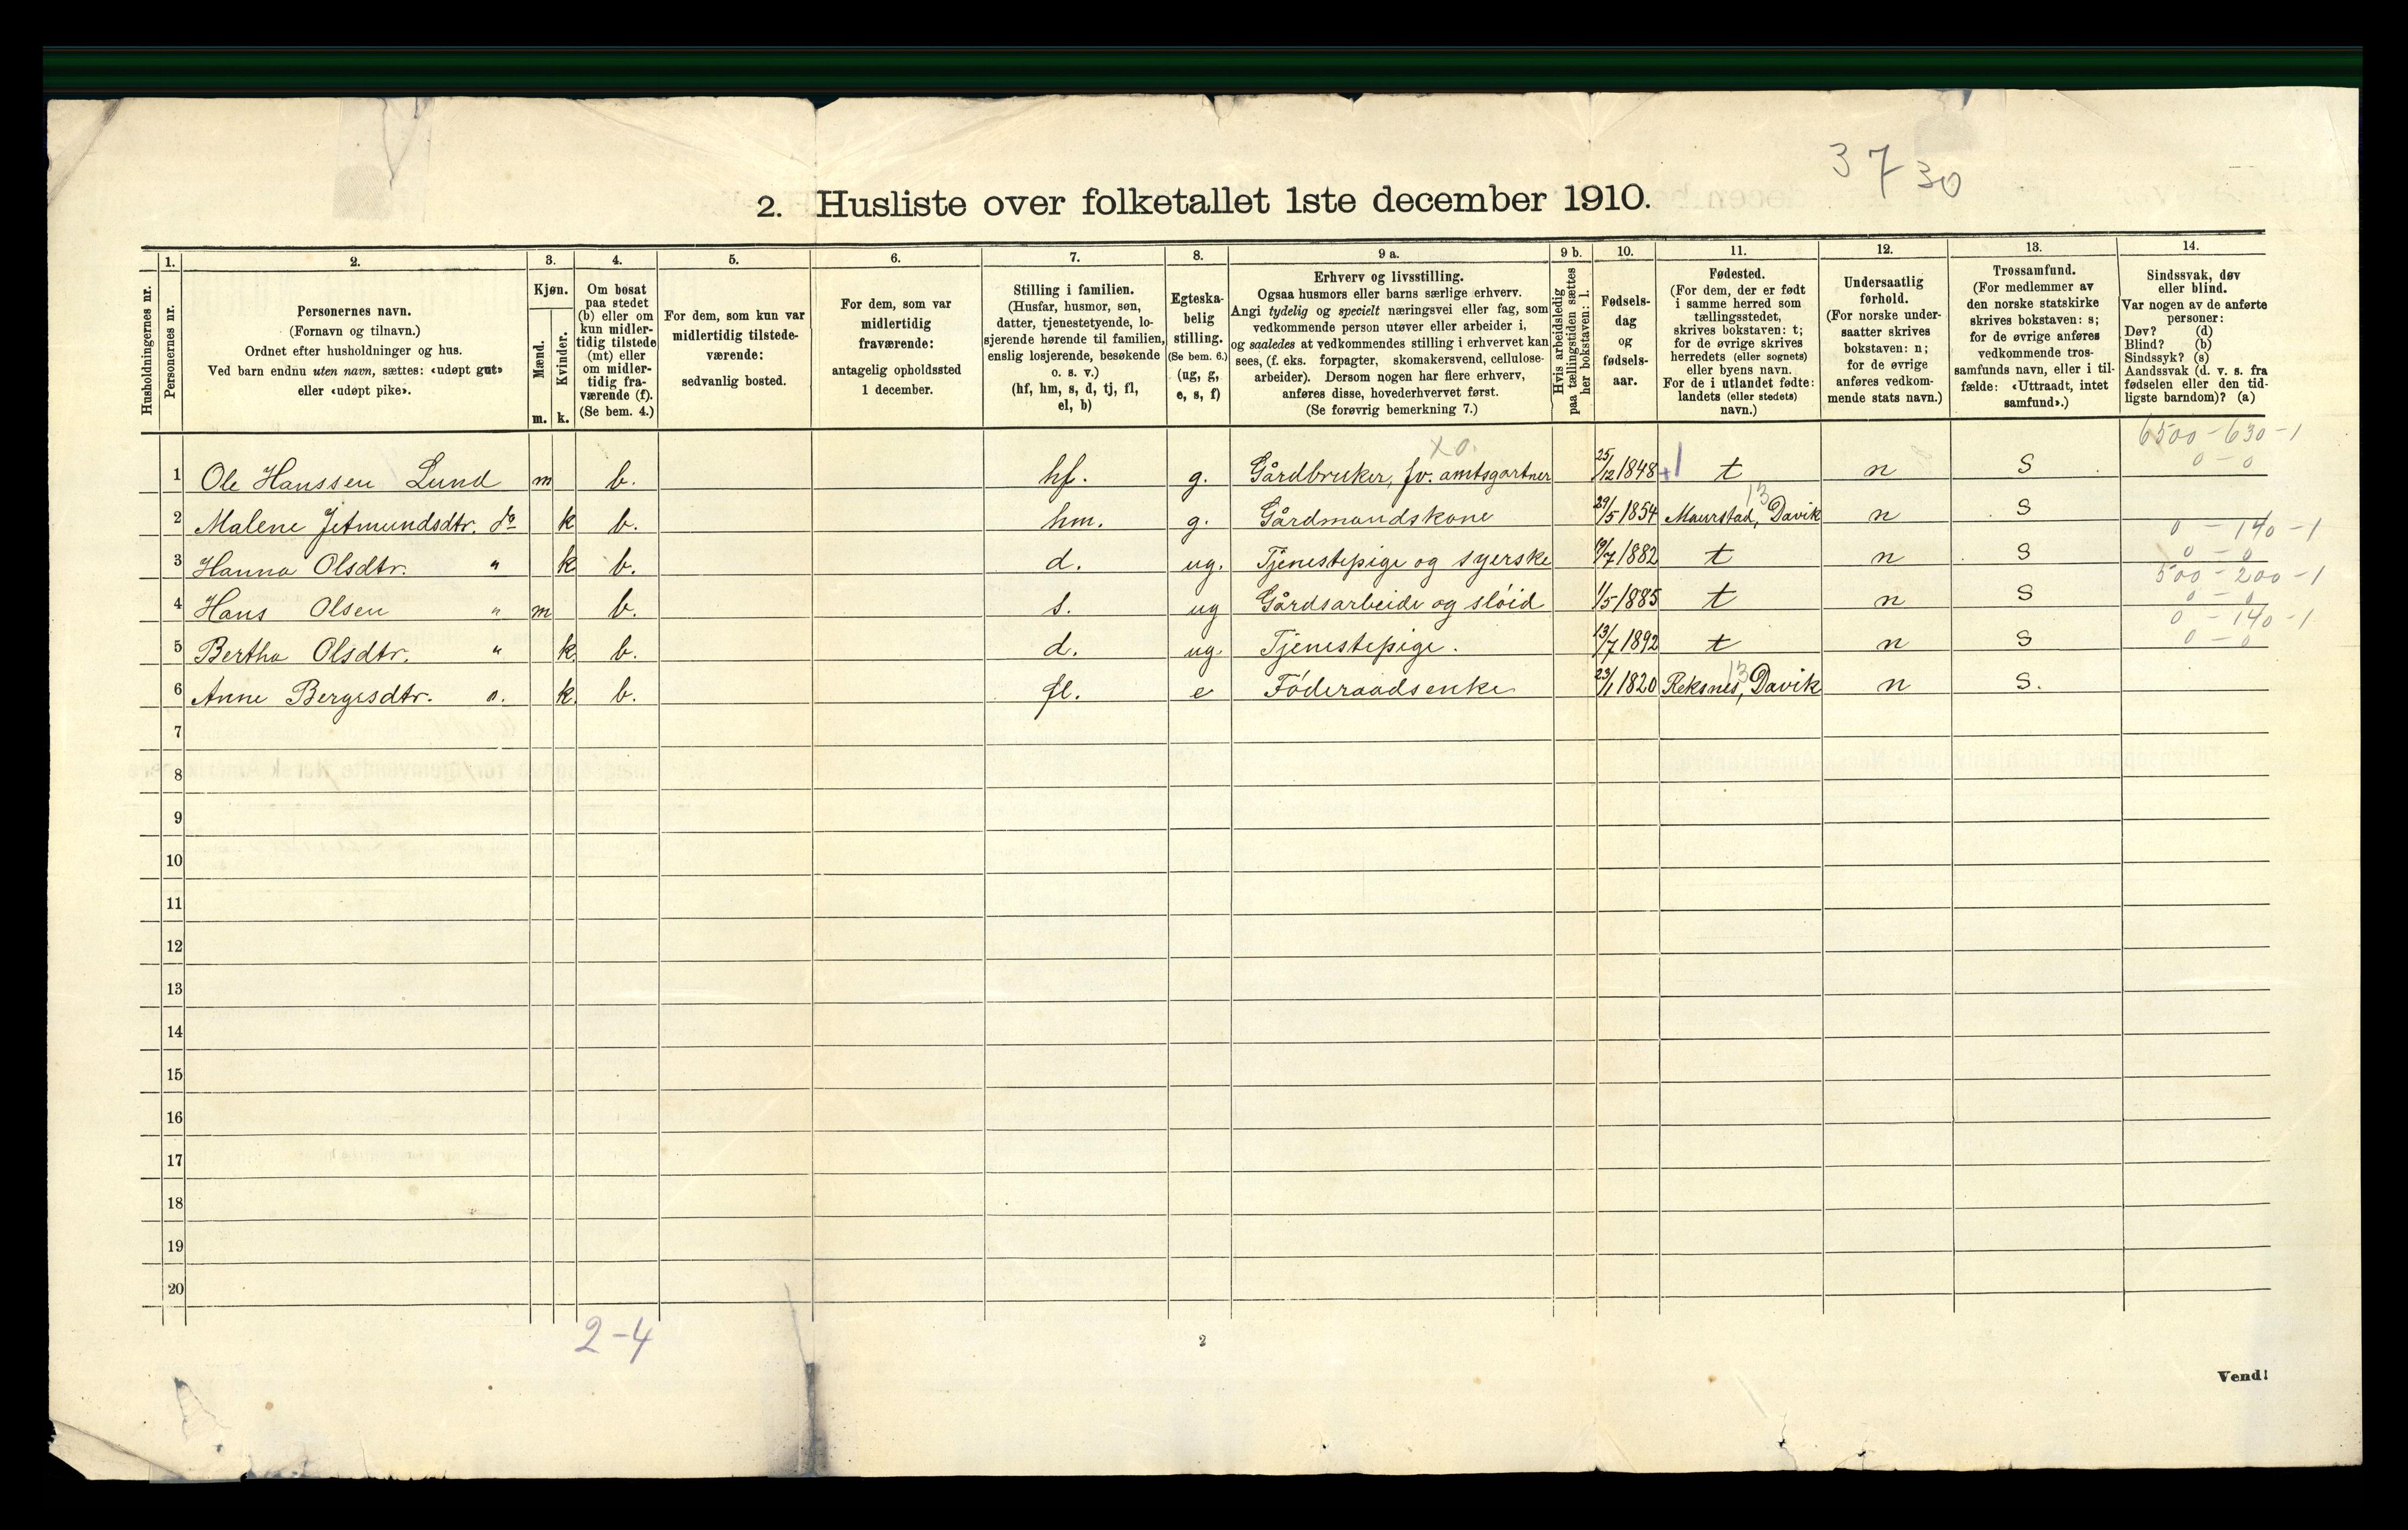 3 7 30
2. Husliste over folketallet 1ste december 1910.
1. 2. 3. 4. 5. 6. 7. 8. 9 a. 9 b. 10. 11. 12. 13. 14.
Husholdningernes nr.
Personernes nr.
Personernes navn.
(Fornavn og tilnavn.)
Ordnet efter husholdninger og hus.
Ved barn endnu uten navn, sættes: «udøpt gut»
eller «udøpt pike».
Kjøn.
Mænd.
Kvinder.
m. k.
Om bosat
paa stedet
(b) eller om
kun midler-
tidig tilstede
(mt) eller
om midler-
tidig fra-
værende (f).
(Se bem. 4.)
For dem, som kun var
midlertidig tilstede-
værende:
sedvanlig bosted.
For dem, som var
midlertidig
fraværende:
antagelig opholdssted
1 december.
Stilling i familien.
(Husfar, husmor, søn,
datter, tjenestetyende, lo-
sjerende hørende til familien,
enslig losjerende, besøkende
o. s. v.)
(hf, hm, s, d, tj, fl,
el, b)
Egteska-
belig
stilling.
(Se bem. 6.)
(ug, g,
e, s, f)
Erhverv og livsstilling.
Ogsaa husmors eller barns særlige erhverv.
Angi tydelig og specielt næringsvei eller fag, som
vedkommende person utøver eller arbeider i,
og saaledes at vedkommendes stilling i erhvervet kan
sees, (f. eks. forpagter, skomakersvend, cellulose-
arbeider). Dersom nogen har flere erhverv,
anføres disse, hovederhvervet først.
(Se forøvrig bemerkning 7.)
Hvis arbeidsledig
paa tællingstiden sættes
her bokstaven: l.
Fødsels-
dag
og
fødsels-
aar.
Fødested.
(For dem, der er født
i samme herred som
tællingsstedet,
skrives bokstaven: t;
for de øvrige skrives
herredets (eller sognets)
eller byens navn.
For de i utlandet fødte:
landets (eller stedets)
navn.)
Undersaatlig
forhold.
(For norske under-
saatter skrives
bokstaven: n;
for de øvrige
anføres vedkom-
mende stats navn.)
Trossamfund.
(For medlemmer av
den norske statskirke
skrives bokstaven: s;
for de øvrige anføres
vedkommende tros-
samfunds navn, eller i til-
fælde: «Uttraadt, intet
samfund».)
Sindssvak, døv
eller blind.
Var nogen av de anførte
personer:
Døv? (d)
Blind? (b)
Sindssyk? (s)
Aandssvak (d. v. s. fra
fødselen eller den tid-
ligste barndom)? (a)
x o. 6500 - 630 - 1
0 - 0
1 Ole Hanssen Lund m b. hf. g. Gårdbruker, fv. amtsgartner 25/12 1848 +1 t n S
13
2 Malene Jetmundsdtr. do k b. hm. g. Gårdmandskone 29/5 1854 Maurstad, Davik n S
0 - 140 - 1
0 - 0
3 Hanna Olsdtr. " k b. d. ug. Tjenestepige og syerske /7 1882 t n S
500 - 200 - 1
0 - 0
4 Hans Olsen " m b. s. ug Gårdsarbeide og slöid 1/5 1885 t n S
0 - 140 - 1
0 - 0
5 Bertha Olsdtr. " k. b. d. ug. Tjenestepige. 13/7 1892 t n S
13
6 Anne Bergesdtr. k. b. fl. e Föderaadsenke 23/1 1820 Reksnes, Davik n S.
7
8
9
10
11
12
13
14
15
16
17
18
19
20
2-4
2
Vend!